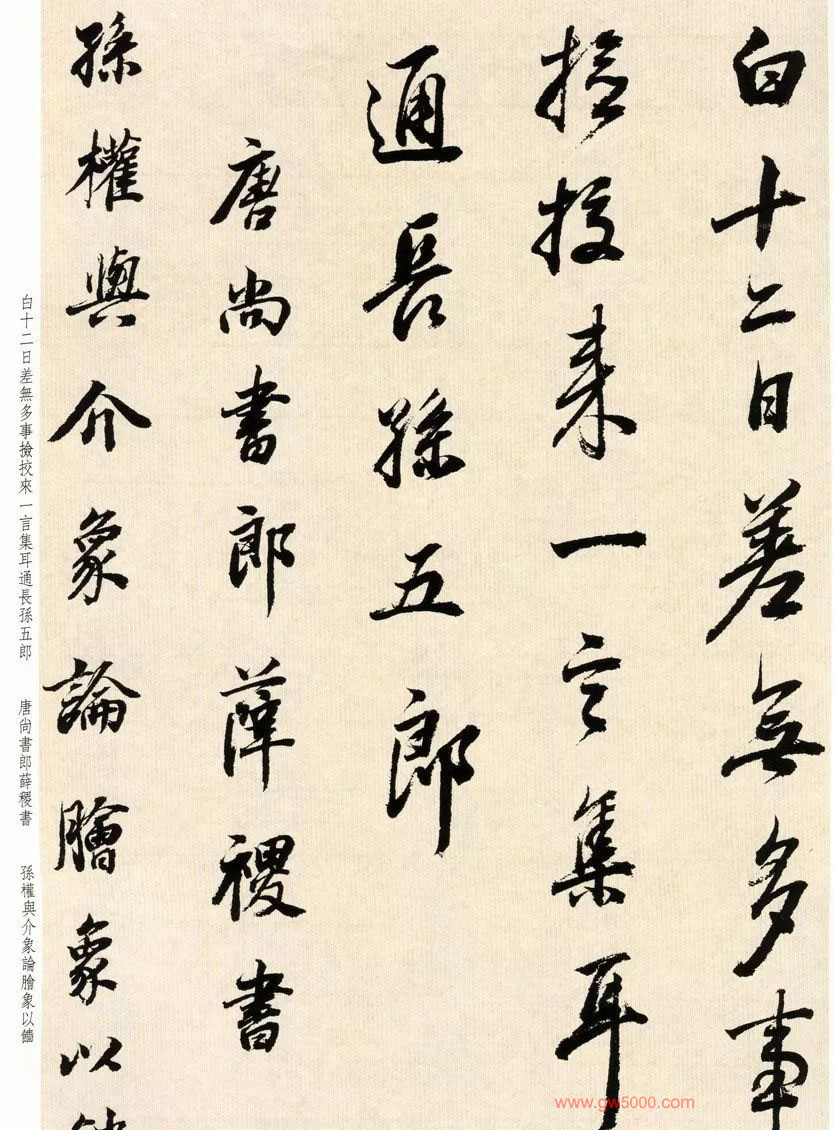 白十二日差無多事
撿挍来一言集耳
通長孫五郎
唐尚書郎薛稷書
孫權與介象論膾象以
白十二日差無多事撿挍來一言集耳通長孫五郎　唐尚書郎薛稷書　孫權與介象論膾象以鱠
www.gw5000.com